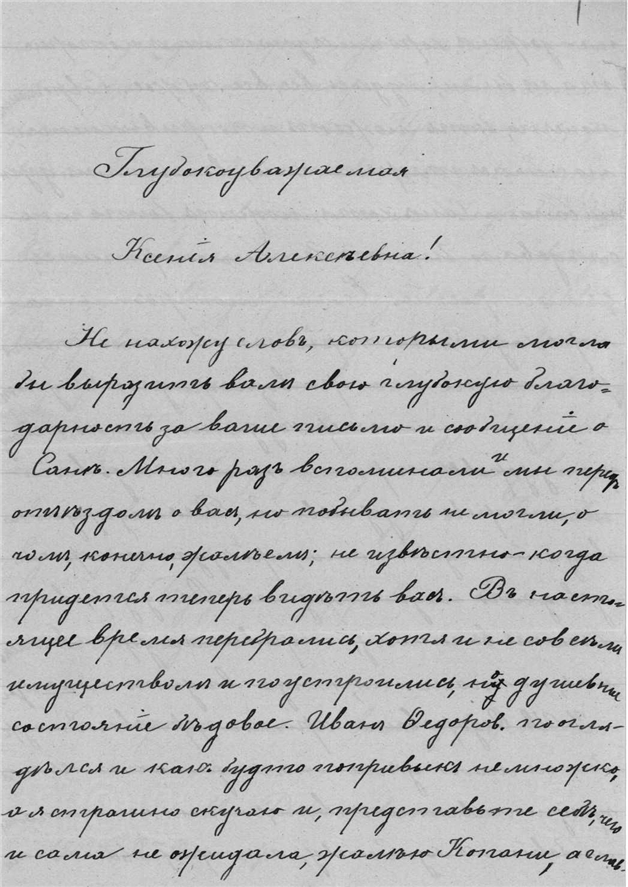 Глубокоуважаемая
Ксенія Алексѣевна!
Не нахожу словъ, которыми могла
бы выразить вамъ свою глубокую благо=
дарность за ваше письмо и сообщеніе о
Санѣ. Много разъ вспоминали и мы передъ
отъѣздомъ о васъ, но побывать не могли, о
чомъ, конечно, жалѣемъ; не извѣстно-когда
придется теперь видѣть васъ. Въ насто-
ящее время перебрались, хотя и не совсѣмъ
имуществомъ и поустроились, но душевные
состояніе бѣдовое. Иванъ Ѳедоров. погля-
дѣлся и какъ будто попривыкъ немножко,
а я страшно скучаю и, представьте себѣ, чего
и сама не ожидала, жалѣю Копани, а глав-